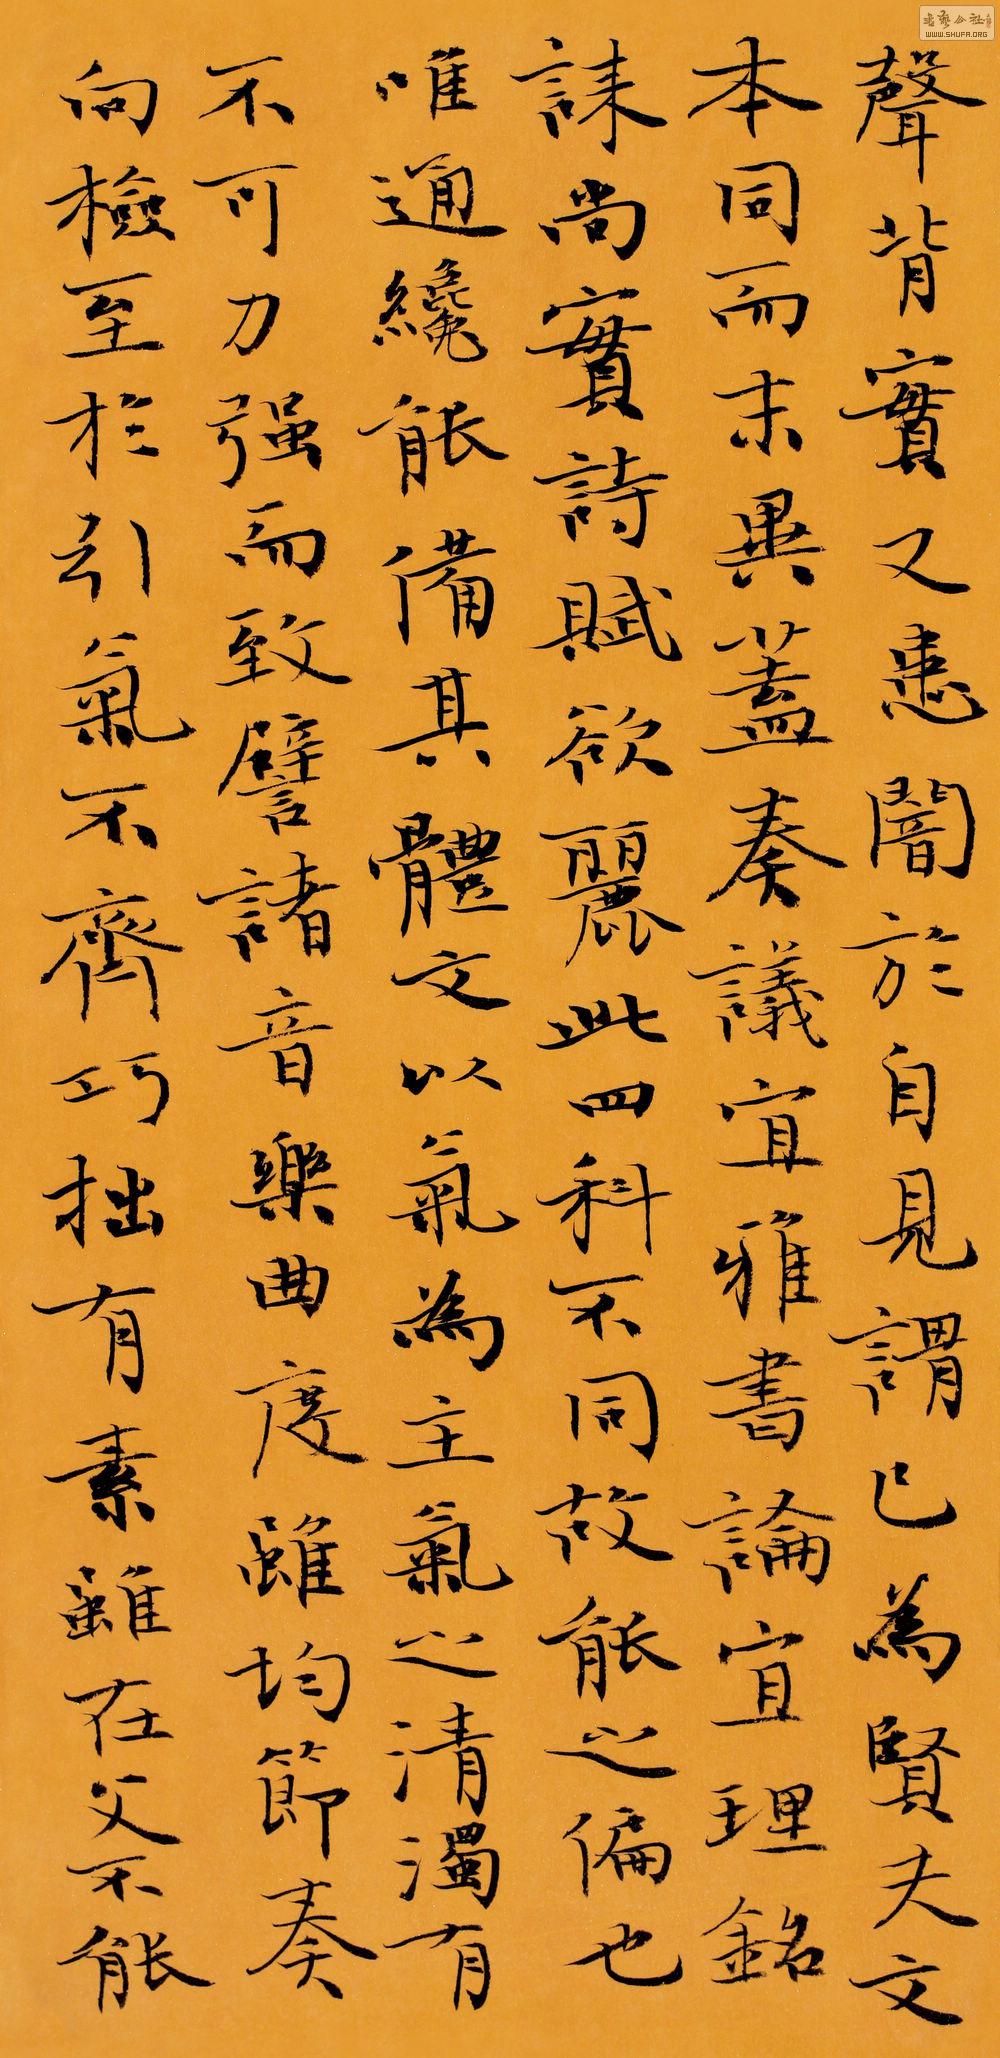 聲背實又患闇於自見謂己為賢夫文
本同而末異蓋奏議宜雅書論宜理銘
誄尚實詩賦欲麗此四科不同故能之偏也
唯通纔能備其體文以氣為主氣之清濁有
不可力强而致譬諸音樂曲度雖均節奏
向檢至於引氣不齊巧拙有素雖在父不能
书艺公社
WWW.SHUFA.ORG